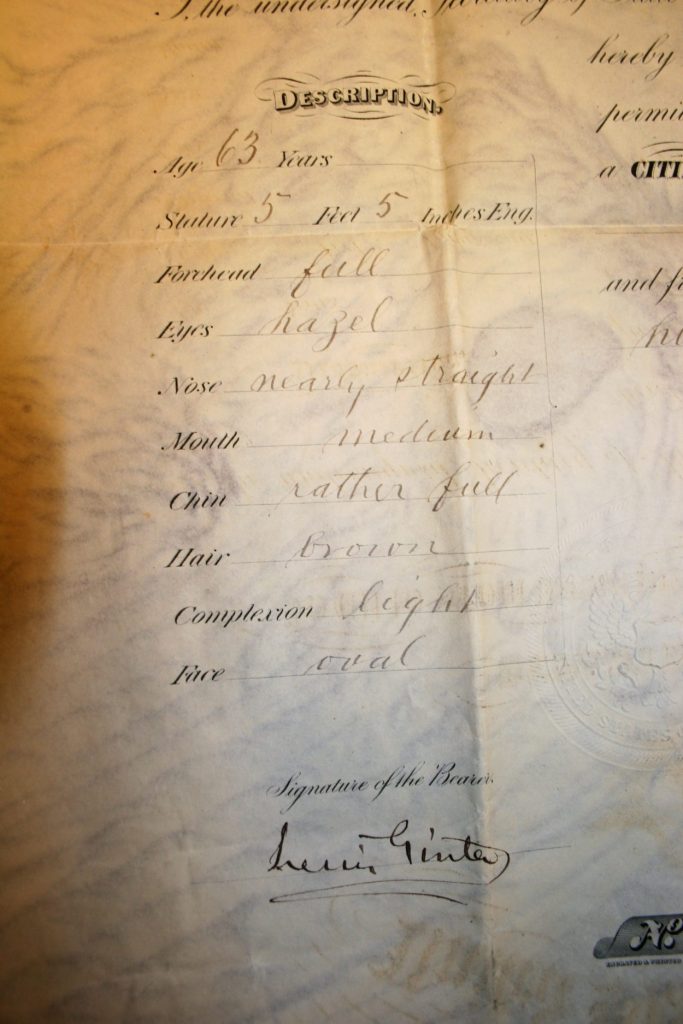 I, the undersigned, Secretary of State
hereby
permi
DESCRIPTION.
Age 63 Years
a CITI
Stature 5 Feet 5 Inches Eng.
Forehead full
and f
Eyes hazel
Nose nearly straight
Mouth medium
Chin rather full
Hair brown
Complexion light
Face oval
Signature of the Bearer.
Lewis Ginter
ENGRAVED & PRINTED